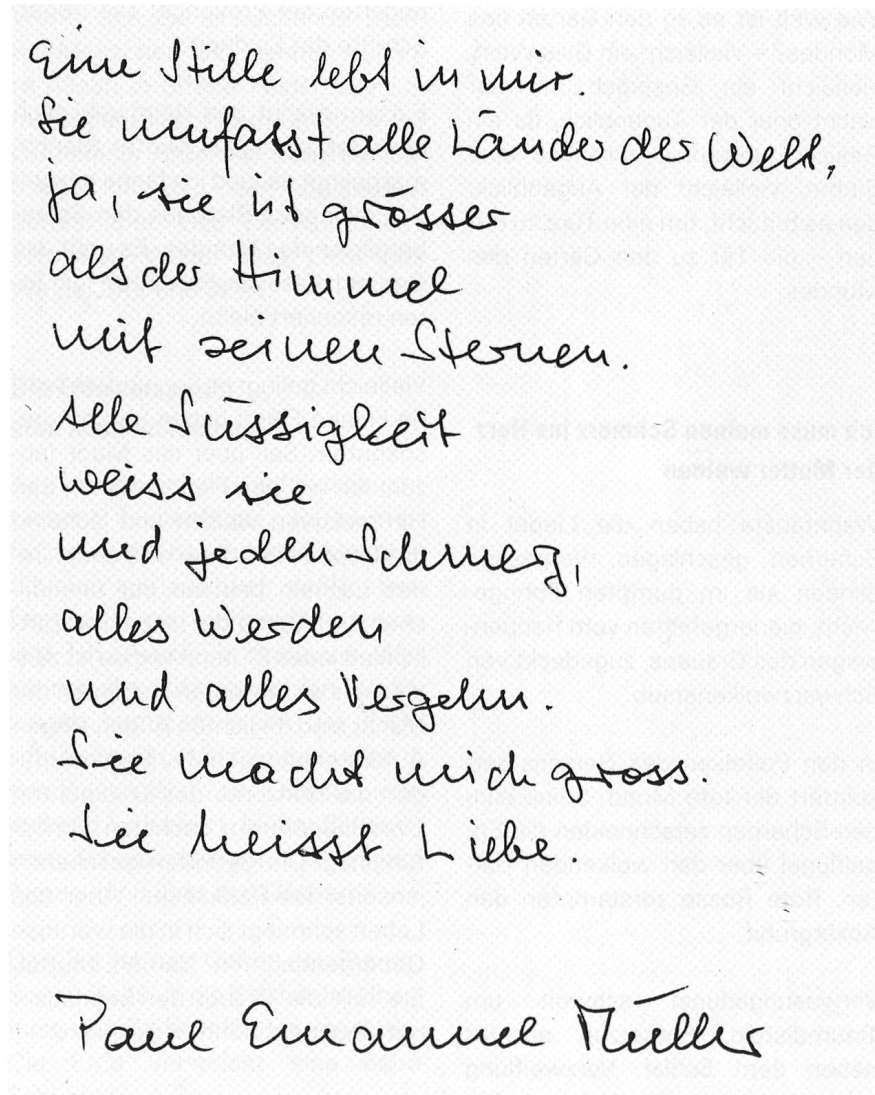 Eine Stille lebt in mir.
Sie umfasst alle Länder der Welt,
ja, sie ist grösser
als der Himmel
mit seinen Sternen.
Alle Süssigkeit
weiss sie
und jeden Schmerz,
alles Werden
und alles Vergehn.
Sie macht mich gross.
Sie heisst Liebe
Paul Emanuel Müller